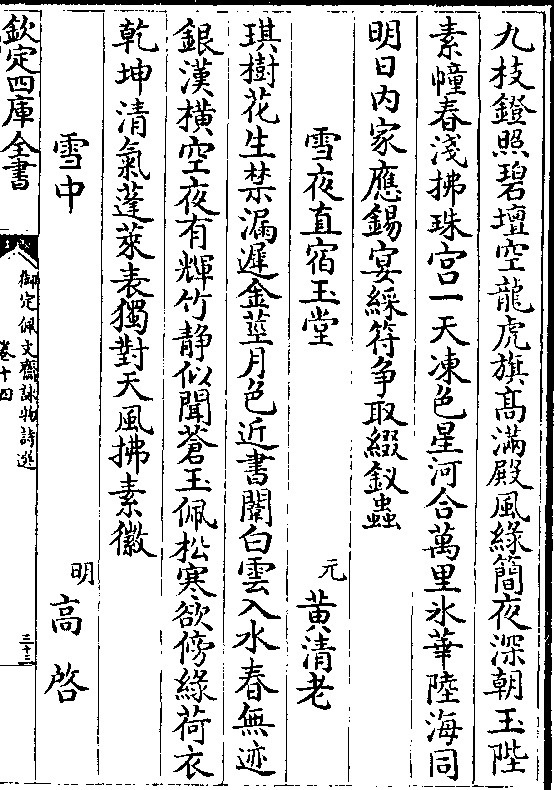 九枝鐙照碧壇空龍虎旗高滿殿風緣簡夜深朝玉陛
素幢春淺拂珠宫一天凍色星河合萬里氷華陸海同
明日内家應錫宴綵符争取綴釵蟲
雪夜直宿玉堂
元 黄清老
琪樹花生禁漏遲金莖月色近書闈白雲入水春無迹
銀漢横空夜有輝竹静似聞蒼玉佩松寒欲傍綠荷衣
乾坤清氣蓬萊表獨對天風拂素徽
雪中
明 高啓
欽定四庫全書
御定佩文齋詠物詩選
卷十四
三十三